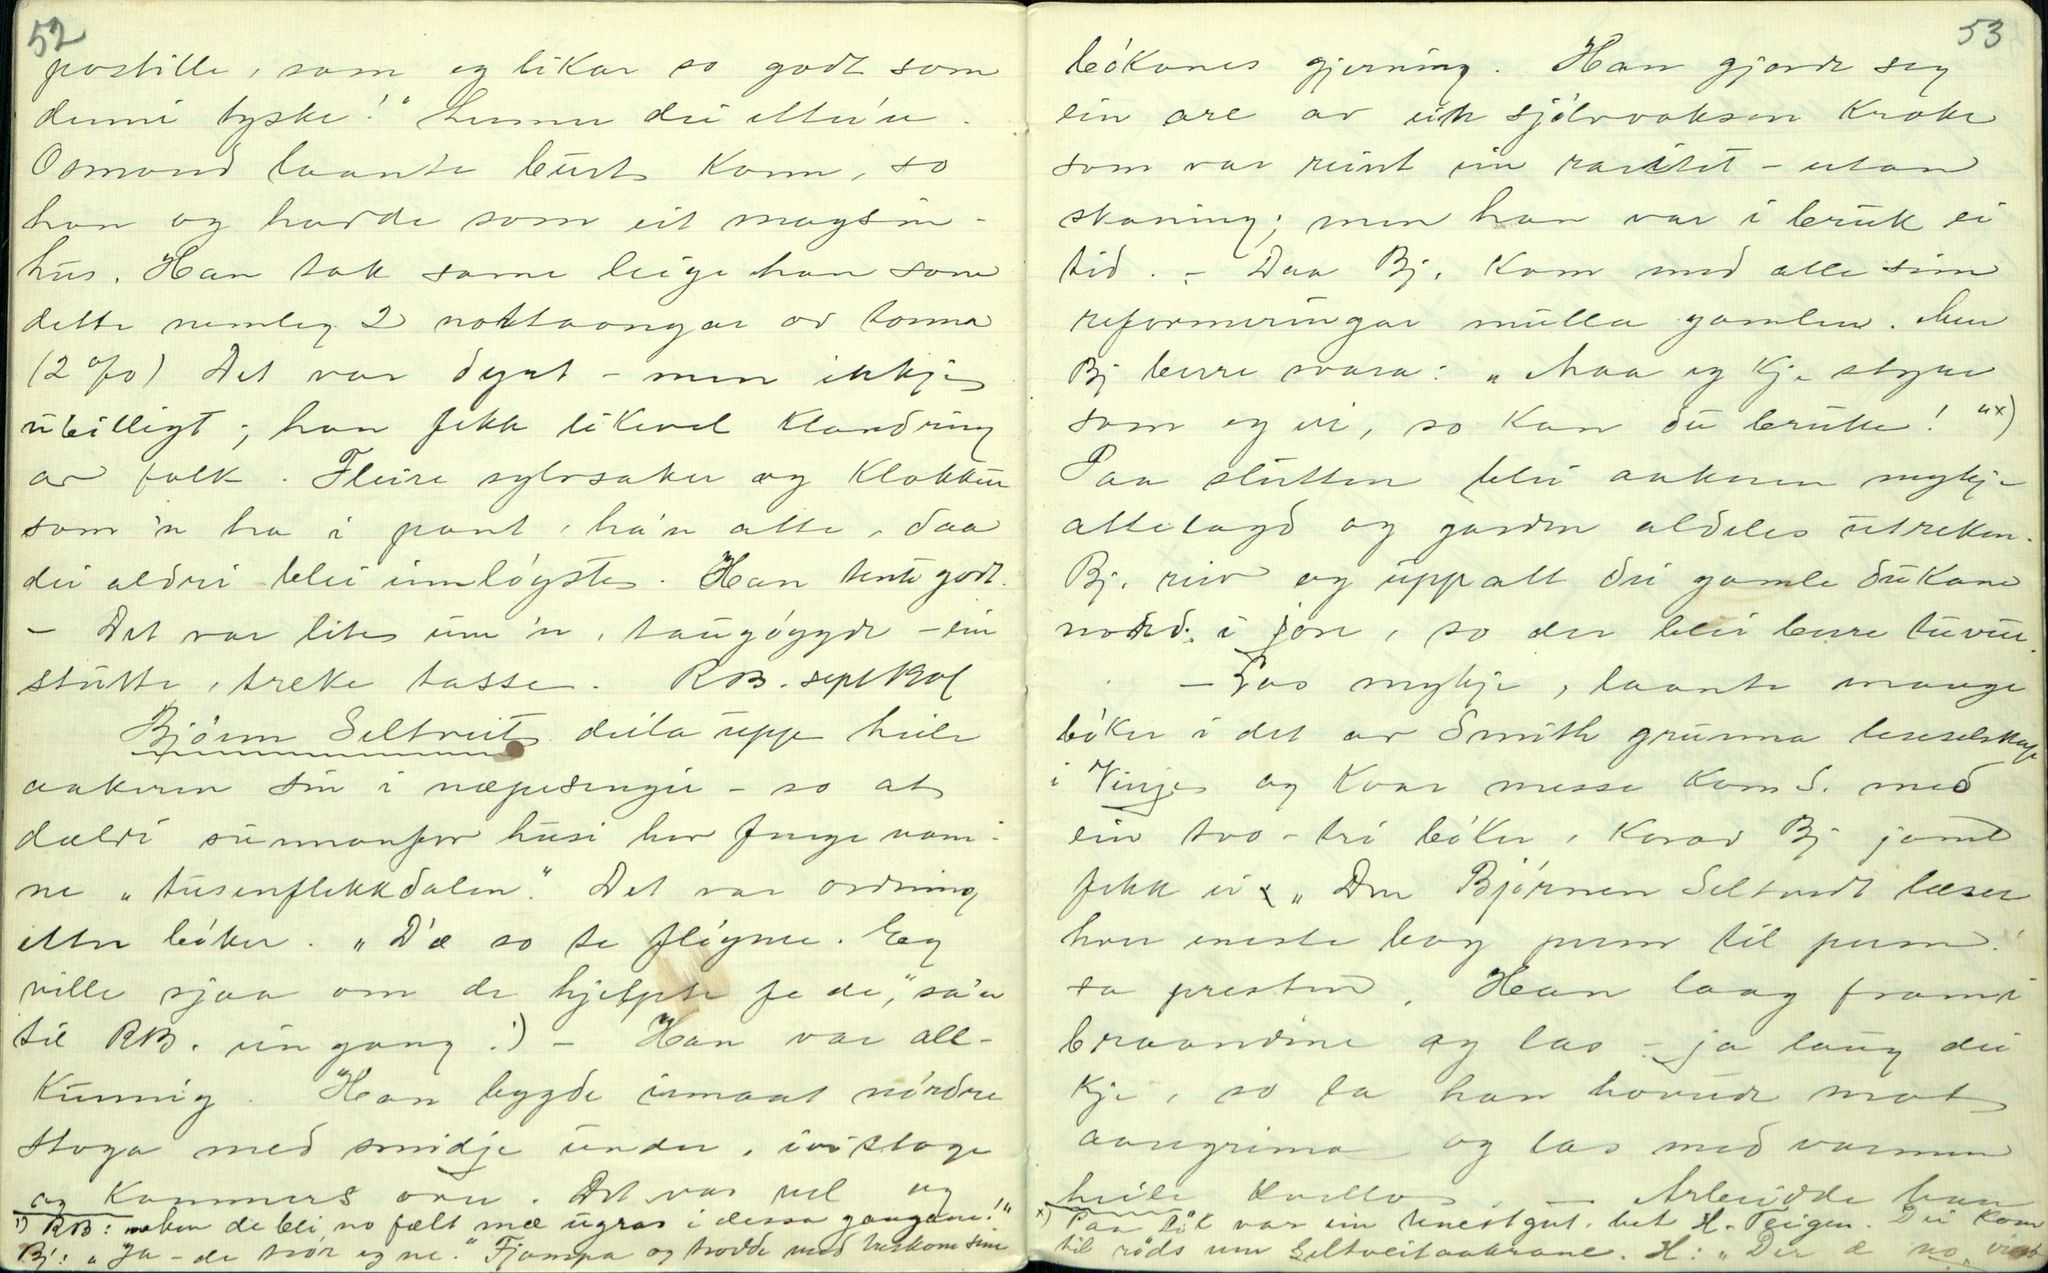 52
postille, som eg likar so godt som
denni tyske!" Lenne dei ette'n.
Osmond laante burt konn, so
han og hadde som eit magsin-
hus. Han tok same leige han som
dette nemleg 2 nottaangar av tonna
(2 %) Det var dyrt - men ikkje
ubilligt; han fekk likevel klandring
av folk. Fleire sylvsaker og klokkur
som 'n ha i pant, ha'n atte, daa
dei aldri blei innløyste. Han tente godt.
- Det var lite um 'n, taugøygde - ein
stutte, treke tasse. RB. sept
Bjørn Seltveit deila upp heile
aakeren sin i næpesengir - so at
dæld'i sunnanfor husi her fenge nam-
ne "tusenflekkdalen." Det var ordning
etter bøker. "D'æ so te fløgnne. Eg
ville sjaa om de hjelpte fe de," sa'n
til RB. ein gong.¹) - Han var all-
kunnig. Han bygde ismaat nørdre
stoga med smidje under, ivistoge
og kammers ovu. Det var vel og
¹) RB: maken de bli no fælt mæ ugras i dessa gangane!"
Bj: "Ja - de trør eg ne." Fjampa og trødde med treskone sine
53
bøkanes gjerning. Han gjorde seg
ein are av ein sjølvvoksen krake
som var reint ein raritet - utan
skoning; men han var i bruk ei
tid. - Daa Bj. kom med alle sine
reformeringar mulla gamlen. Men
Bj berre svara: "Maa eg kje styre
som eg vi, so kan du bruke!" ˣ)
Paa slutten blei aakeren mykje
attelagd og garden aldeles utreken.
Bj. reiv og uppatt dei gamle dukane
nedi i jore, so der blei berre tuvur.
- Las mykje, laante mange
bøker i det av Smith grunna leseselskap
i Vinje og kvar messe kom S. med
ein tvo-tri bøker, kvarav Bj jamt
fekk ei "Den Bjørnen Seltvedt læser
hver eneste bog perm til perm!
sa presten. Han laag frami
braandine og las - ja laug dei
kje, so la han hovude mot
aaregrima og las med varmen
heile kvelden. - Arbeidde han
ˣ) Paa Lok var ein tenestgut, het H. Teigen. Dei kom
til røds um Seltveitaakrane. H: "Der æ no visst